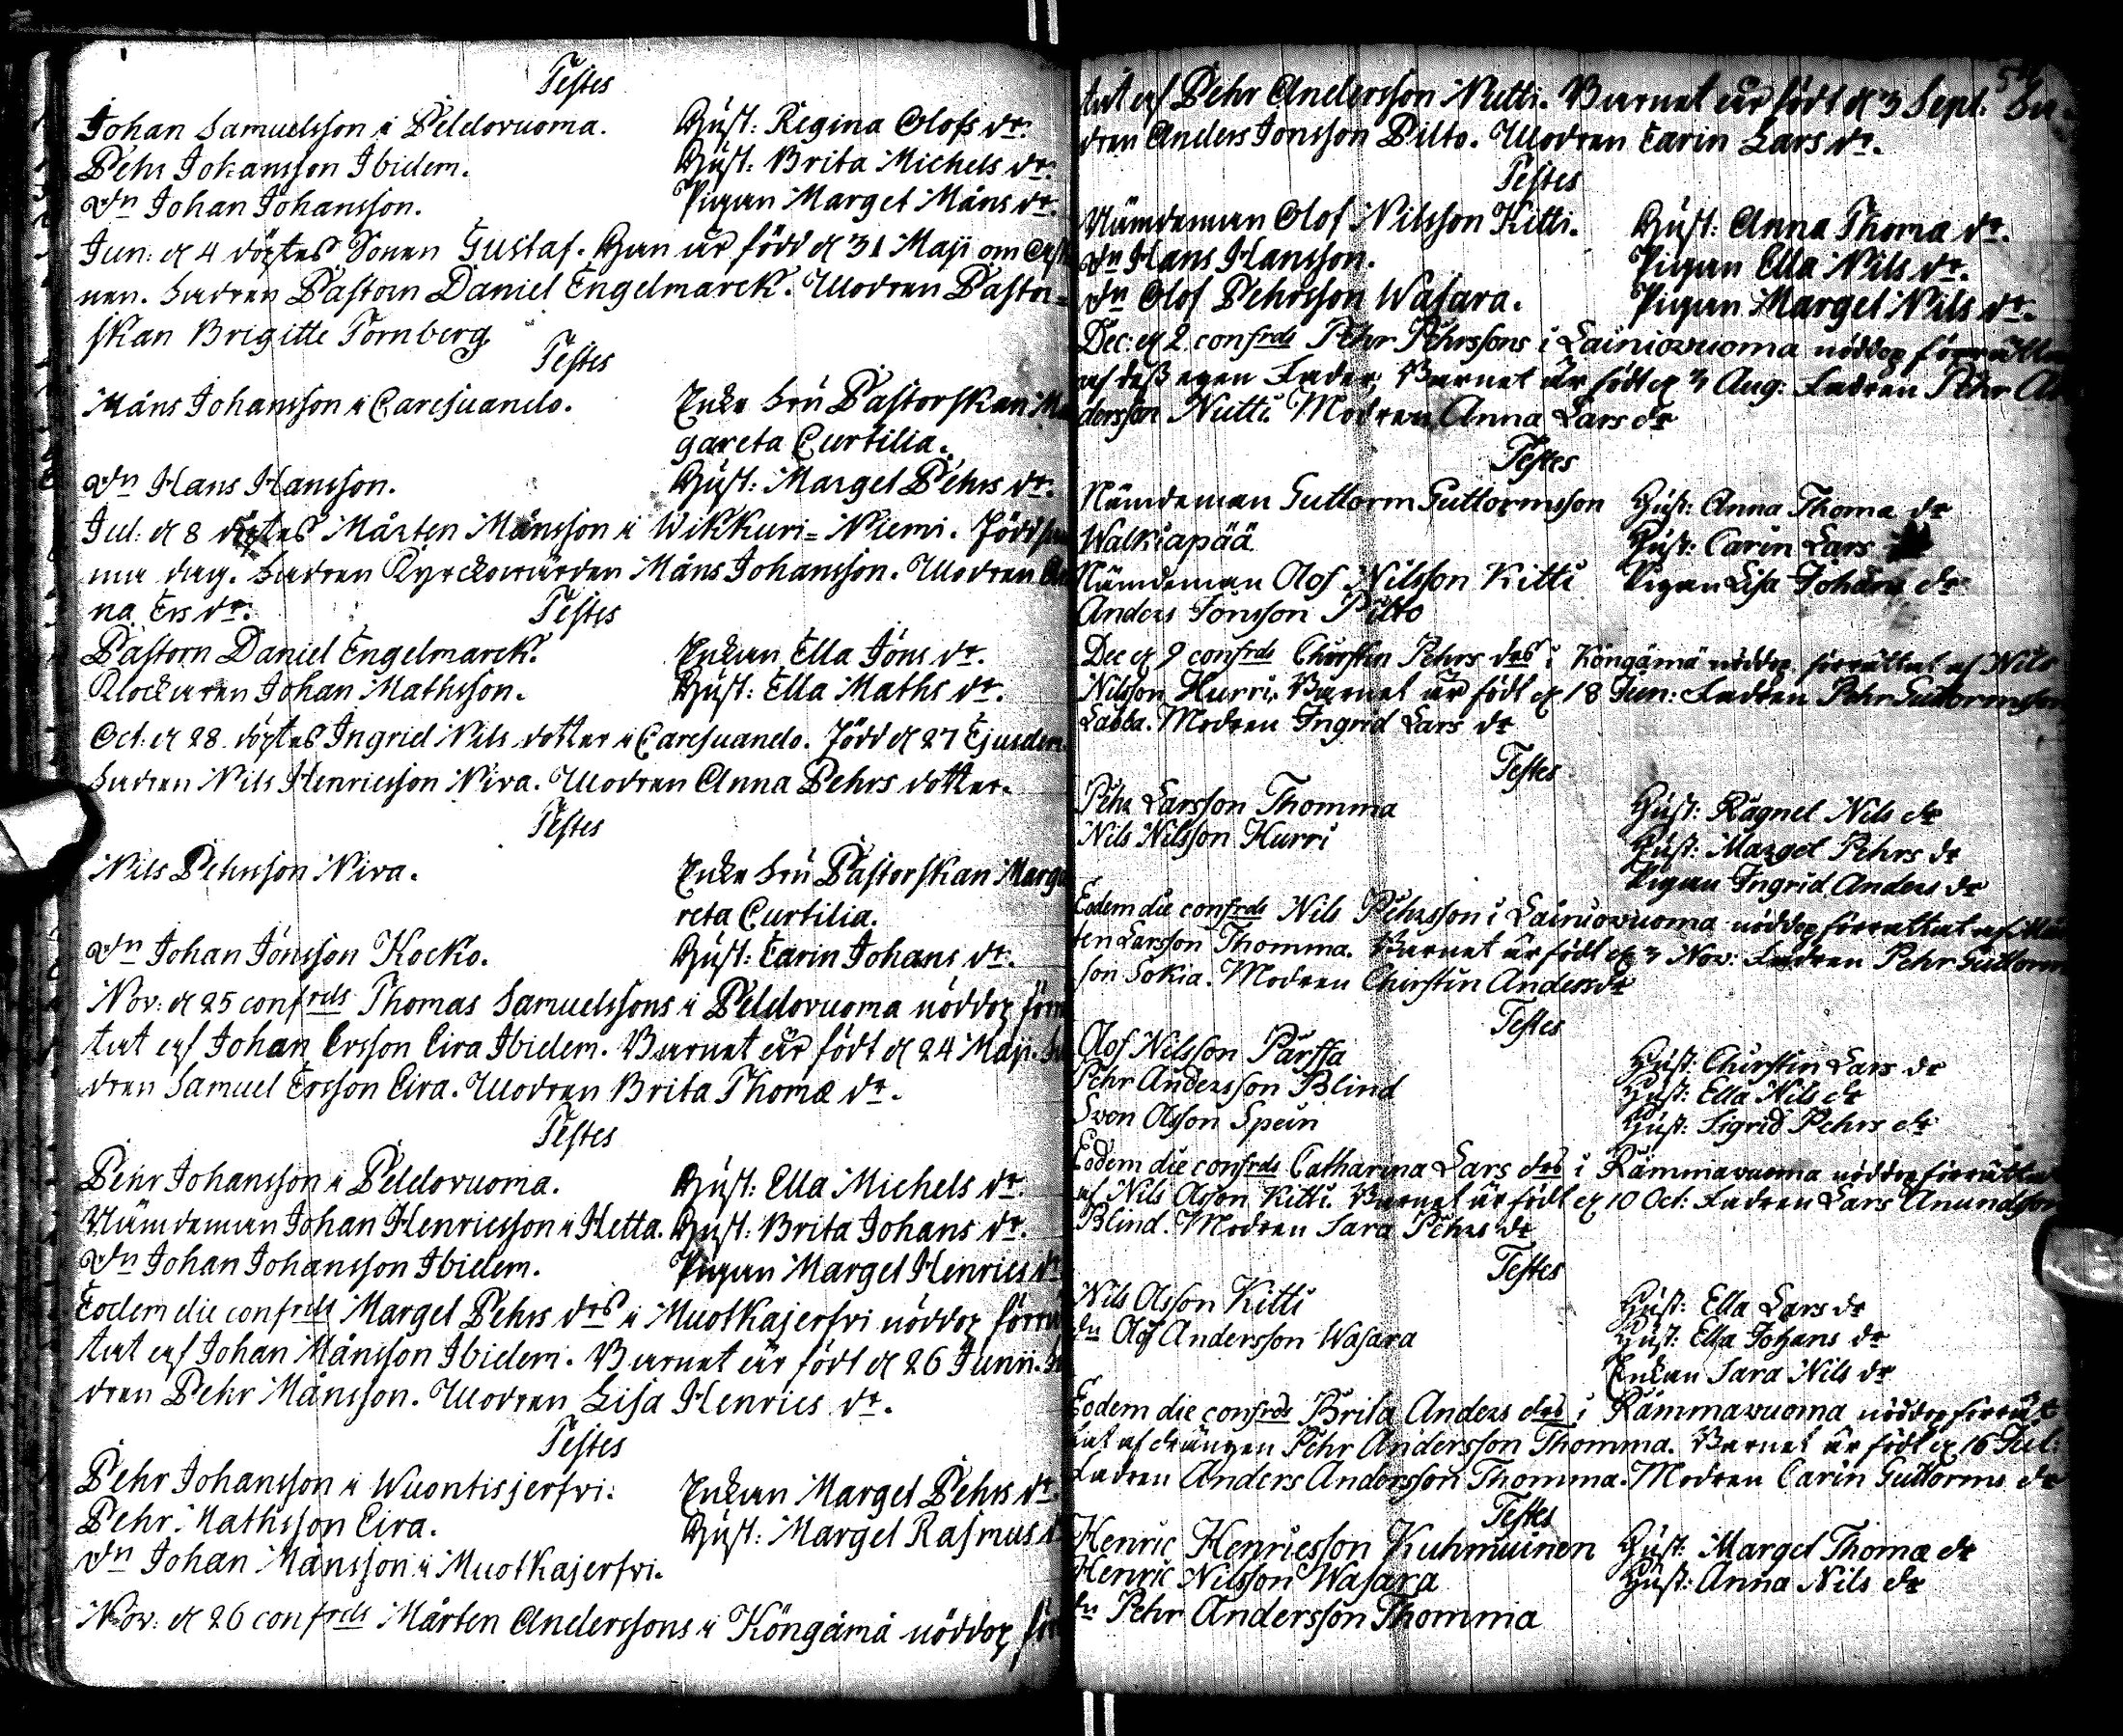 Testes
Johan Samuelsson i Peldovuoma. Hust: Regina Olofs dr.
Pehr Johansson Ibidem. Hust: Brita Michels dr.
Dn Johan Johansson. Pigan Marget Måns dr.
Jun: d 4 döptes Sonen Gustaf. Han är född d 31 Maji om
nen. Fadren Pastorn Daniel Engelmarck. Modren Pastor-
skan Brigitte Tornberg
Testes
Måns Johansson i Caresuando. Enke Fru Pastorskan Mar
gareta Curtilia.
Dn Hans Hansson. Hust: Marget Pehrs dr.
Jul: d 8 döptes Mårten Månsson i Wikkuri-Niemi. Född sam
ma dag. Fadren Kyrckowärden Måns Johansson. Modren An
na Ers dr.
Testes
Pastorn Daniel Engelmarck. Enkan Ella Jöns dr.
Klockaren Johan Mathsson. Hust: Ella Maths dr.
Oct: d 28 döptes Ingrid Nils dotter i Caresuando. Född d 27 Ejusdem.
Fadren Nils Henricsson Niva. Modren Anna Pehrs dotter.
Testes
Nils Pehrsson Niva. Enke Fru Pastorskan Marga
reta Curtilia.
Dn Johan Jönsson Kocko. Hust: Carin Johans dr.
Nov: d 25 confrds Thomas Samuelssons i Peldovuoma nöddop förrä
tat af Johan Ersson Eira Ibidem. Barnet är födt d 24 Maji. Fa
dren Samuel Ersson Eira. Modren Brita Thomæ dr.
Testes
Pehr Johansson i Peldovuoma. Hust: Ella Michels dr.
Nämdeman Johan Henricsson i Hetta. Hust: Brita Johans dr.
Dn Johan Johansson Ibidem. Pigan Marget Henrics dr
Eodem die confrds Margel Pehrs drs i Muotkajerfvi nöddop förrä
tat af Johan Månsson Ibidem. Barnet är födt d 26 Junii. Fa
dren Pehr Månsson. Modren Lisa Henrics dr.
Testes
Pehr Johansson i Wuontisjerfvi. Enkan Marget Pehrs dr.
Pehr Mathsson Eira. Hust: Margel Rasmus d
Dn Johan Månsson i Muotkajerfvi.
Nov: d 26 confrds Mårten Anderssons i Köngämä nöddop för
tat af Pehr Andersson Nutti. Barnet är födt d 3 Sept: Fa
dren Anders Jonsson Pilto. Modren Carin Lars dr.
Testes
Nämdeman Olof Nilsson Kitti. Hust: Anna Thoma dr.
Dn Hans Hansson. Pigan Ella Nils dr.
Dn Olof Pehrsson Wasara. Pigan Margel Nils dr.
Dec: d 2 confrds Pehr Pehrssons i Lainiovuoma nöddop förrättat
af dess egen Fader. Barnet är födt d 3 Aug: Fadren Pehr An
dersson Nutti. Modren Anna Lars dr
Testes
Nämdeman Guttorm Guttormsson Hust: Anna Thoma dr
Walkiapää Hust: Carin Lars
Nämdeman Olof Nilsson Kitti Pigan Lisa Johans dr
Anders Jonsson Pilto
Dec d 9 confrds Chirstin Pehrs drs i Köngämä nöddop förrättat af Nils
Nilsson Hurri. Barnet är födt d 18 Jun: Fadren Pehr Guttormsson
Labba. Modren Ingrid Lars dr
Testes
Pehr Larsson Thomma Hust: Ragnel Nils dr
Nils Nilsson Hurri Hust: Marget Pehrs dr
Pigan Ingrid Anders dr
Eodem die confrds Nils Pehrsson i Lainiovuoma nöddop förrättat af Mår
ten Larsson Thomma. Barnet är födt d 3 Nov: Fadren Pehr Guttorm
son Sokia. Modren Chirstin Anders dr
Testes
Olof Nilsson Parffa Hust: Chirstin Lars dr
Pehr Andersson Blind Hust: Ella Nils dr
Sven Olsson Spein Hust: Sigrid Pehrs dr
Eodem die confrds Catharina Lars drs i Rämmavuoma nöddop förrättat
af Nils Olsson Kitti. Barnet är födt d 10 Oct: Fadren Lars Anundsson
Blind. Modren Sara Pehrs dr
Testes
Nils Olsson Kitti Hust: Ella Lars dr
Dn Olof Andersson Wasara Hust: Ella Johans dr
Enkan Sara Nils dr
Eodem die confrds Brita Anders drs i Rämmavuoma nöddop förrät
tat af drängen Pehr Andersson Thomma. Barnet är födt d 16 Jul:
Fadren Anders Andersson Thomma. Modren Carin Guttorms dr
Testes
Henric Henricsson Kuhmuinen Hust: Marget Thomæ dr
Henric Nilsson Wasara Hust: Anna Nils dr
Dn Pehr Andersson Thomma